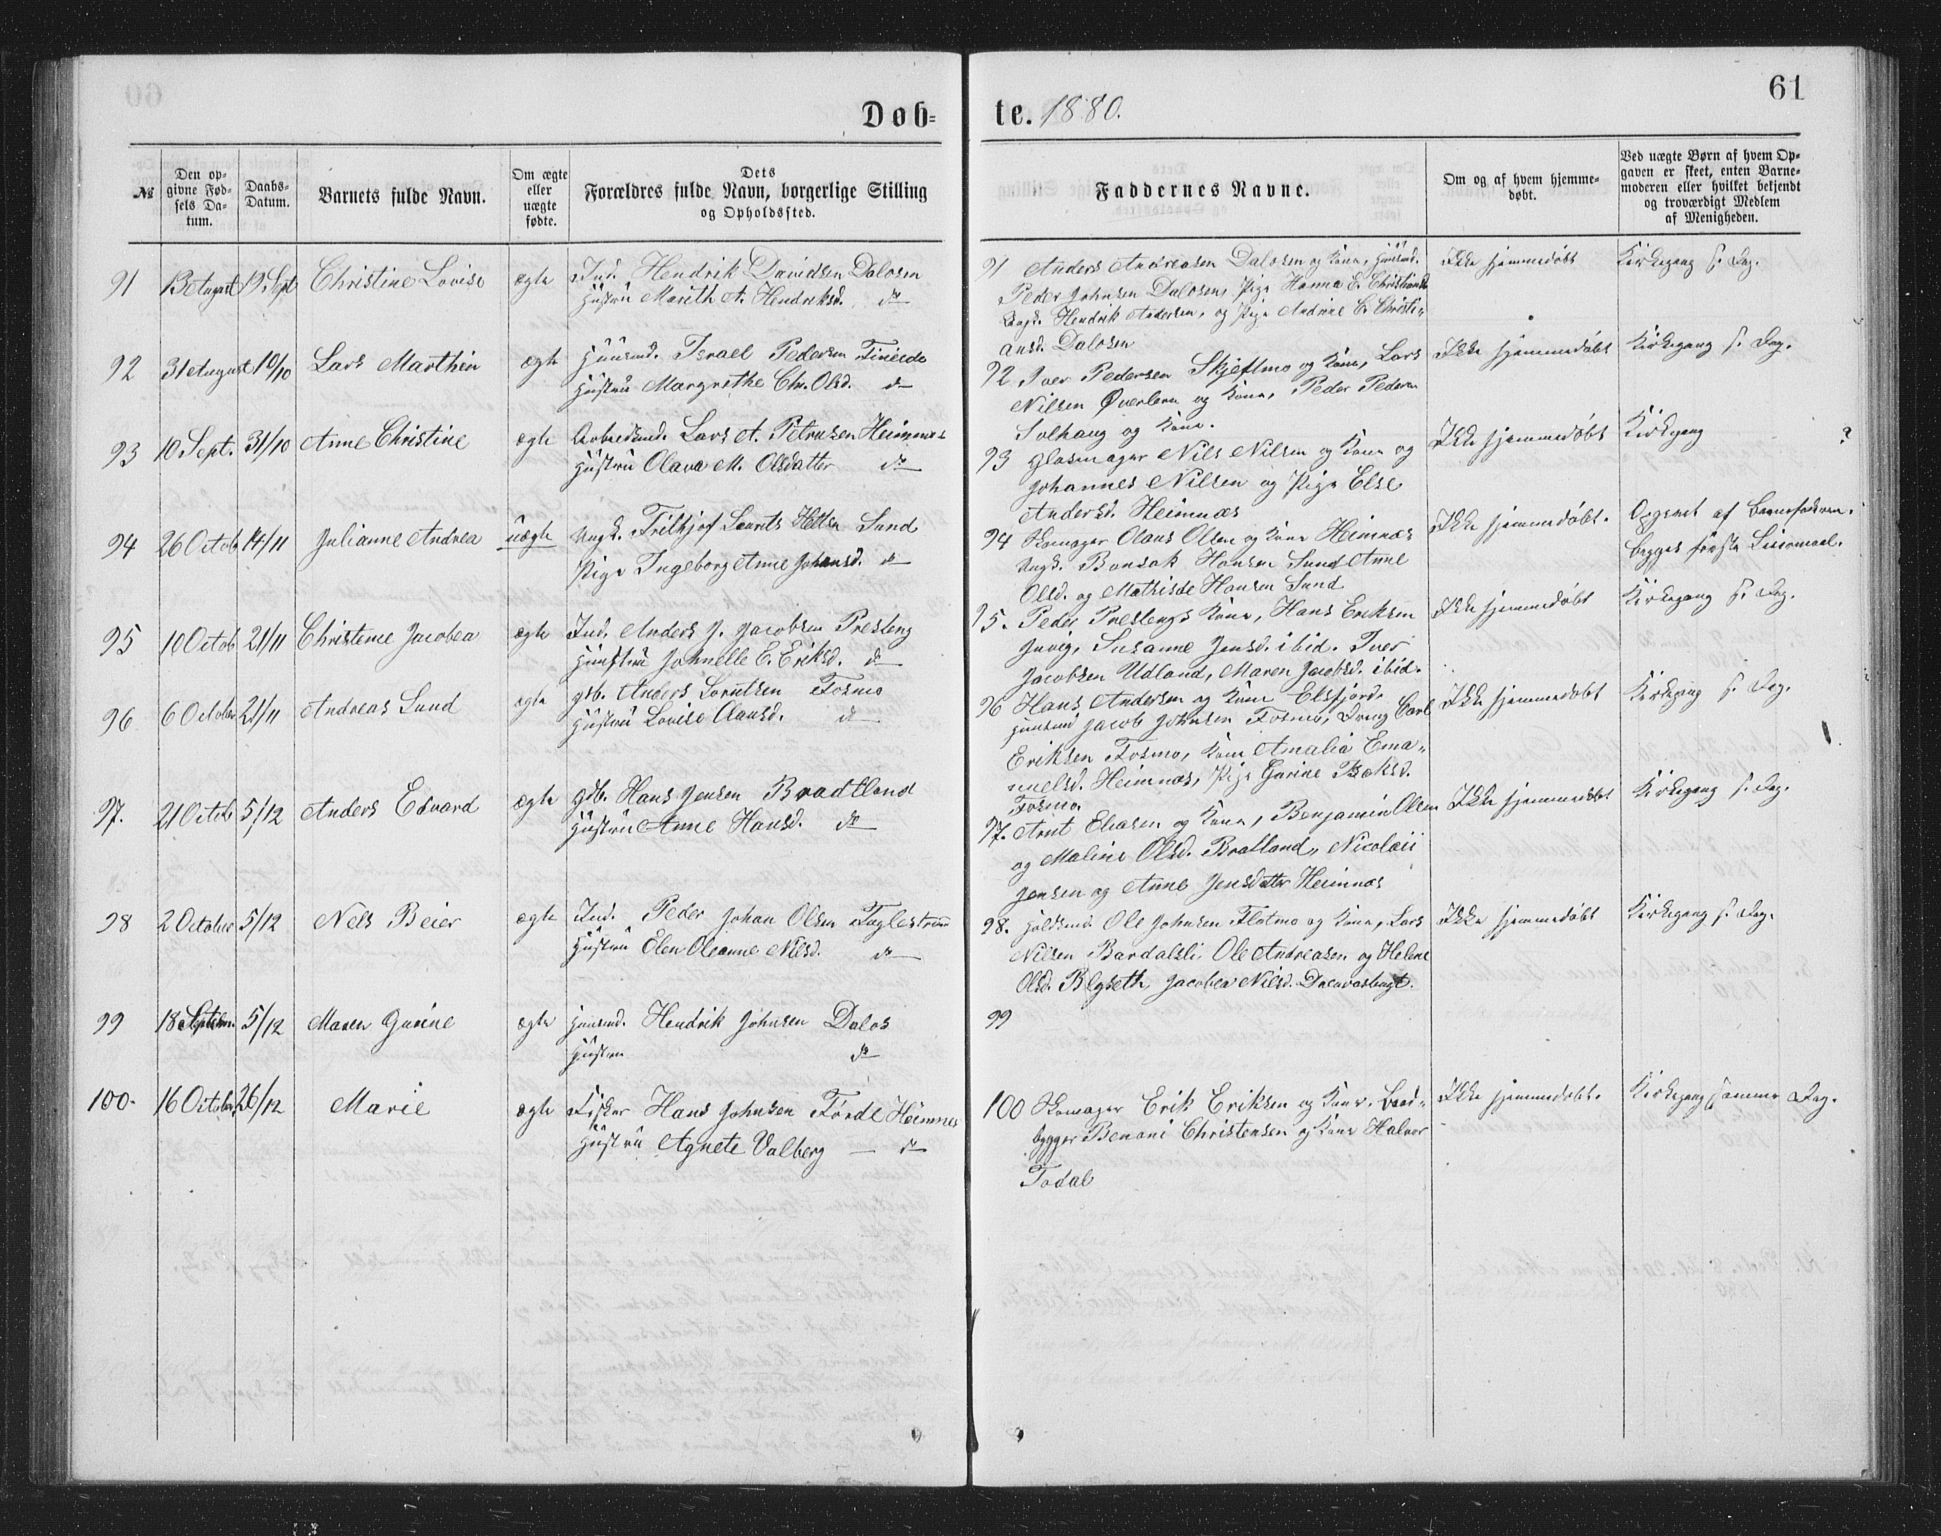 61
Døb=
te. 1880.
№
Den op-
givne Fød-
sels Da-
tum.
Daabs-
Datum.
Barnets fulde Navn.
Om ægte
eller
uægte
fødte.
Dets
Forældres fulde Navn, borgerlige Stilling
og Opholdssted.
Faddernes Navne.
Om og af hvem hjemme-
døbt.
Ved uægte Børn af hvem Op-
gaven er skeet, enten Barne-
moderen eller hvilket bekjendt
og troværdigt Medlem
af Menigheden.
91 13 August 19 Sept Christine Lovise ægte Ind. Hendrik Davidsen Dalosen
Hustru Marith A. Hendriksd. do
91 Anders Andreasen Dalosen og Kone, Huusmd. Ikke hjemmedøbt Kirkegang s. Dag.
Peder Johnsen Dalosen, Pige Hanna E. Christiansd.
Ungk. Hendrik Andersen, og Pige Andrine C. Christi-
ansd. Dalosen
92 31 August 10/10 Lars Marthin ægte Huusmd. Israel Pedersen
Hustru Margrethe Chr. Olsd. do
92 Iver Pedersen Skjeflmo og Kone, Lars Ikke hjemmedøbt Kirkegang s. Dag.
Nilsen Øverleren og Kone, Peder Pedersen
Solhaug og Kone.
93 10 Sept. 31/10 Anne Christine ægte Arbeidsmd. Lars A. Petersen Heimnes
Hustru Olava M. Olsdatter do
93 Glasmager Nils Nilsen og Kone og Ikke hjemmedøbt Kirkegang ?
Johannes Nilsen og Pige Else
Andersd. Heimnæs
94 26 Octob 14/11 Julianne Andrea uægte Ungk. Frithjof Laurits Hetten Sund
Pige Ingeborg Anne Johansd. do
94 Skomager Olaus Olsen og Kone Heimnæs Ikke hjemmedøbt. Opgivet af Barnefaderen.
Ungk. Bonsak Hansen Sund Anne begges første Leiermaal.
Olsd. og Mathilde Hansen Sund
95 10 Octob 21/11 Christense Jacobea ægte Ind. Anders J. Jacobsen Presteng
Hustru Johnelle E. Eriksd. do
95. Peder Prestengs Kone, Hans Eriksen Ikke hjemmedøbt Kirkegang s. Dag.
Juvig, Susanne Jensd. ibid. Iver
Jacobsen Udland, Maren Jacobsd. ibid.
96 6 October 21/11 Andreas Sund ægte Gdb. Anders Lorntsen Fosmo
Hustru Lovise Clausd. do
96 Hans Andersen og Kone Elsfjord. Ikke hjemmedøbt Kirkegang s. Dag.
Huusmd Jacob Johnsen Fosmo, Dreng Carl
Eriksen Fosmo, Kone Amalia Ema-
nuelsd. Heimnæs, Pige Gurine Isaksd.
Fosmo.
97. 21 Octob 5/12 Anders Edvard ægte Gdb. Hans Jensen Bradtland
Hustru Anne Hansd. do
97. Arnt Eliasen og Kone, Benjamin Olsen Ikke hjemmedøbt Kirkegang s. Dag.
og Maline Olsd. Bratland, Nicolaii
Jensen og Anne Jensdatter Heimnæs
98 2 October 5/12 Nels Beier ægte Ind. Peder Johan Olsen Fuglestrand
Hustru Elen Oleanne Nilsd. do
98. Ole Johnsen Flatmo og Kone, Lars Ikke hjemmedøbt Kirkegang s. Dag.
Nilsen Bardalsli Ole Andreasen og Helene
Olsd. Blyseth, Jacobea Nilsd.
99 18 Septbr. 5/12 Maren Gurine ægte Huusmd. Hendrik Johnsen Dalos
Hustru do
99
100. 16 October 26/12 Marie ægte Fisker Hans Johnsen Førde Heimnes
Hustru Agnete Valberg — do
100 Skomager Erik Eriksen og Kone. Baad- Ikke hjemmedøbt. Kirkegang samme Dag.
bygger Benoni Christensen og Kone Halvor
Todal